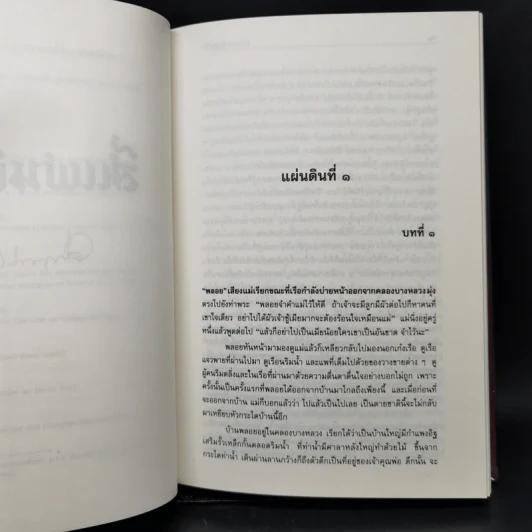 แผ่นดินที่ ๑
บทที่ ๑
"พลอย" เสียงแม่เรียกขณะที่เรือกำลังบ่ายหน้าออกจากคลองบางหลวง มุ่ง
ตรงไปยังท่าพระ "พลอยจำคำแม่ไว้ให้ดี ถ้าเจ้าจะมีลูกมีผัวต่อไปก็หาคนที่
เขาใจเดียว อย่าไปได้ผัวเจ้าชู้เมียมากจะต้องร้อนใจเหมือนแม่" แม่นิ่งอยู่ครู่
หนึ่งแล้วพูดต่อไป "แล้วก็อย่าไปเป็นเมียน้อยใครเขาเป็นอันขาด จำไว้นะ"
พลอยหันหน้ามามองดูแม่แล้วก็เหลียวกลับไปมองนอกเก๋งเรือ ดูเรือ
แจวพายที่ผ่านไปมา ดูเรือนริมน้ำ และแพที่เต็มไปด้วยของวางขายต่าง ๆ ดู
ผู้คนริมตลิ่งและในเรือที่ผ่านมาด้วยความตื่นตาตื่นใจอย่างบอกไม่ถูก เพราะ
ครั้งนั้นเป็นครั้งแรกที่พลอยได้ออกจากบ้านมาไกลถึงเพียงนี้ และเมื่อก่อนที่
จะออกจากบ้าน แม่ก็บอกแล้วว่า ไปแล้วเป็นไปเลย เป็นตายชาตินี้จะไม่กลับ
มาเหยียบหัวกระไดบ้านนี้อีก
บ้านพลอยอยู่ในคลองบางหลวง เรียกได้ว่าเป็นบ้านใหญ่มีกำแพงอิฐ
เสริมรั้วเหล็กกั้นตลอดริมน้ำ ที่ท่าน้ำมีศาลาหลังใหญ่ทำด้วยไม้ ขึ้นจาก
กระไดท่าน้ำ เดินผ่านลานกว้างก็ถึงตัวตึกเป็นที่อยู่ของเจ้าคุณพ่อ ตึกนั้น จะ